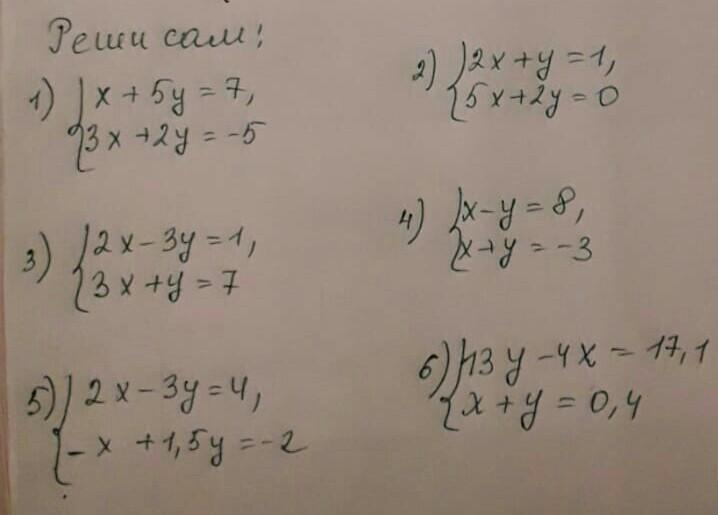 Реши сам!
1) { x + 5y = 7,
3x + 2y = -5
2) { 2x + y = 1,
5x + 2y = 0
3) { 2x - 3y = 1,
3x + y = 7
4) { x - y = 8,
x + y = -3
5) { 2x - 3y = 4,
-x + 1,5y = -2
6) { 13y - 4x = 17,1
x + y = 0,4